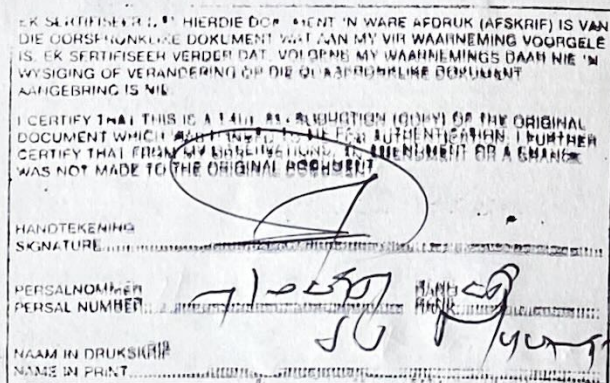 EK SERTIFISEER HIERDIE 'N WARE AFDRUK (AFSKRIF) IS VAN
DIE OORSPRONKLIKE DOKUMENT WAT AAN MY VIR WAARNEMING VOORGELE
IS. EK SERTIFISEER VERDER DAT, VOLGENS MY WAARNEMINGS DAAR NIE 'N
WYSIGING OF VERANDERING OP DIE OORSPRONKLIKE DOKUMENT
AANGEBRING IS NIE.
I CERTIFY THAT THIS IS A REPRODUCTION (COPY) OF THE ORIGINAL
DOCUMENT WHICH ME FOR AUTHENTICATION. I FURTHER
CERTIFY THAT FROM MY OBSERVATIONS, AN AMENDMENT OR A CHANGE
WAS NOT MADE TO THE ORIGINAL DOCUMENT
HANDTEKENING
SIGNATURE
PERSALNOMMER RANG
PERSAL NUMBER RANK
NAAM IN DRUKSKRIF
NAME IN PRINT